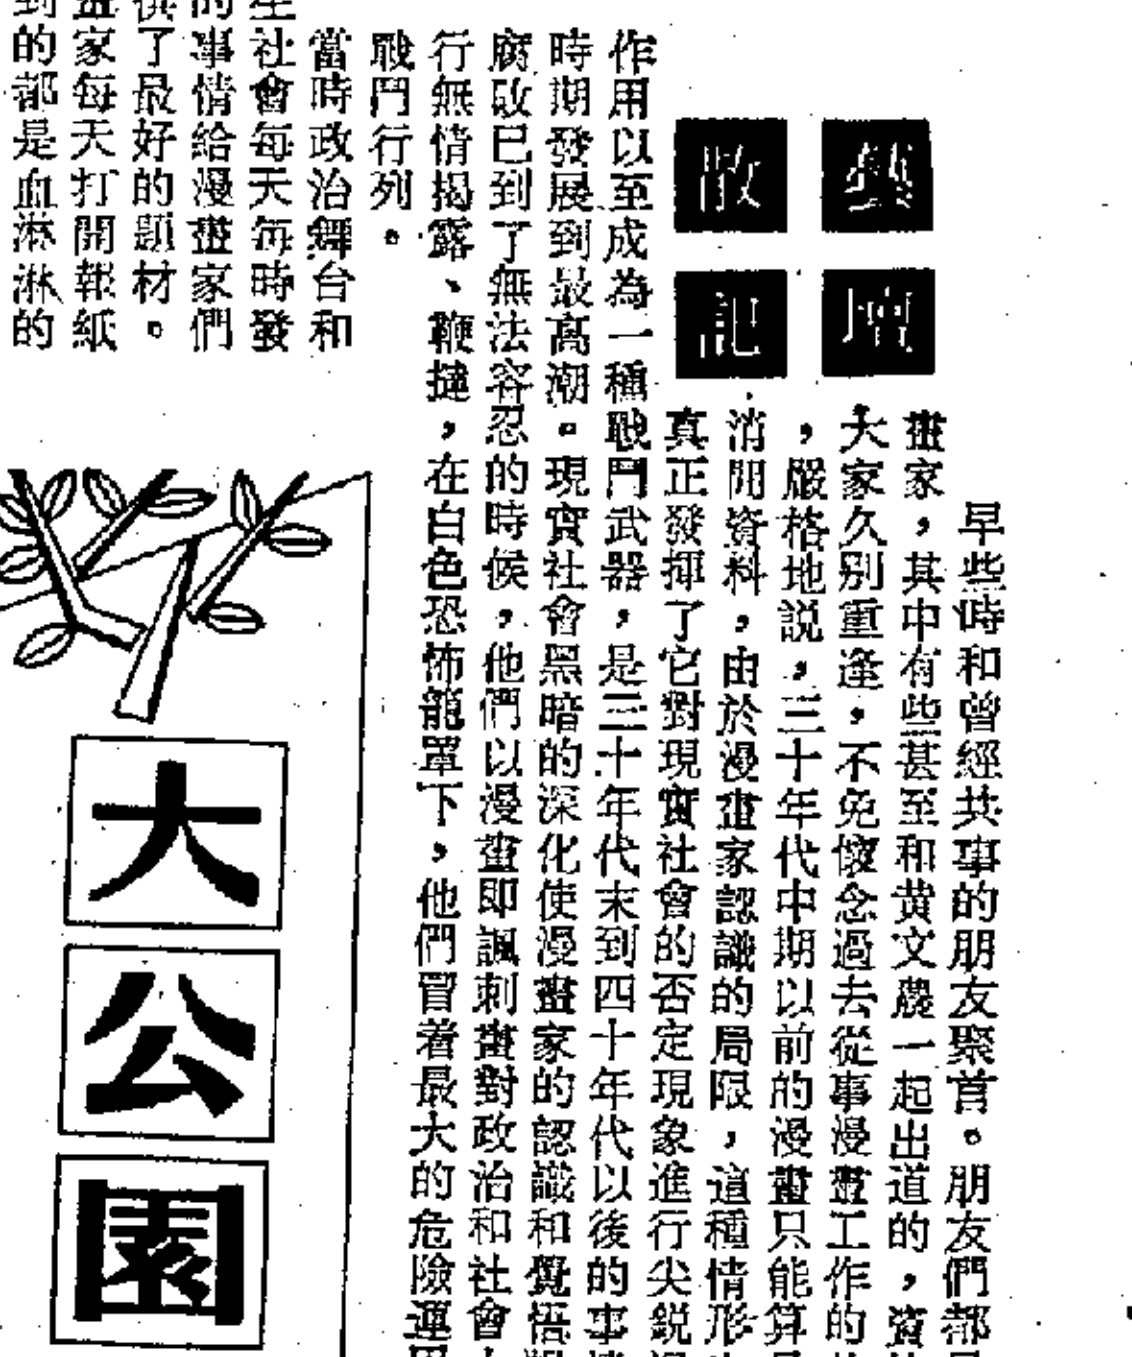 藝壇
散記
早些時和曾經共事的朋友聚首。朋友們都
畫家,其中有些甚至和黄文農一起出道的,資
大家久別重逢,不免懷念過去從事漫畫工作的
,嚴格地説,三十年代中期以前的漫畫只能算
消閒資料,由於漫畫家認識的局限,這種情形
真正發揮了它對現實社會的否定現象進行尖鋭
作用以至成為一種戰鬥武器,是三十年代末到四十年代以後的事
時期發展到最高潮。現實社會黑暗的深化使漫畫家的認識和覺悟
腐敗已到了無法容忍的時候,他們以漫畫即諷刺畫對政治和社會
行無情揭露、鞭撻,在白色恐怖籠罩下,他們冒着最大的危險運
戰鬥行列。
當時政治舞台和
社會每天每時發
的事情給漫畫家們
供了最好的題材。
畫家每天打開報紙
到的都是血淋淋的
大公園